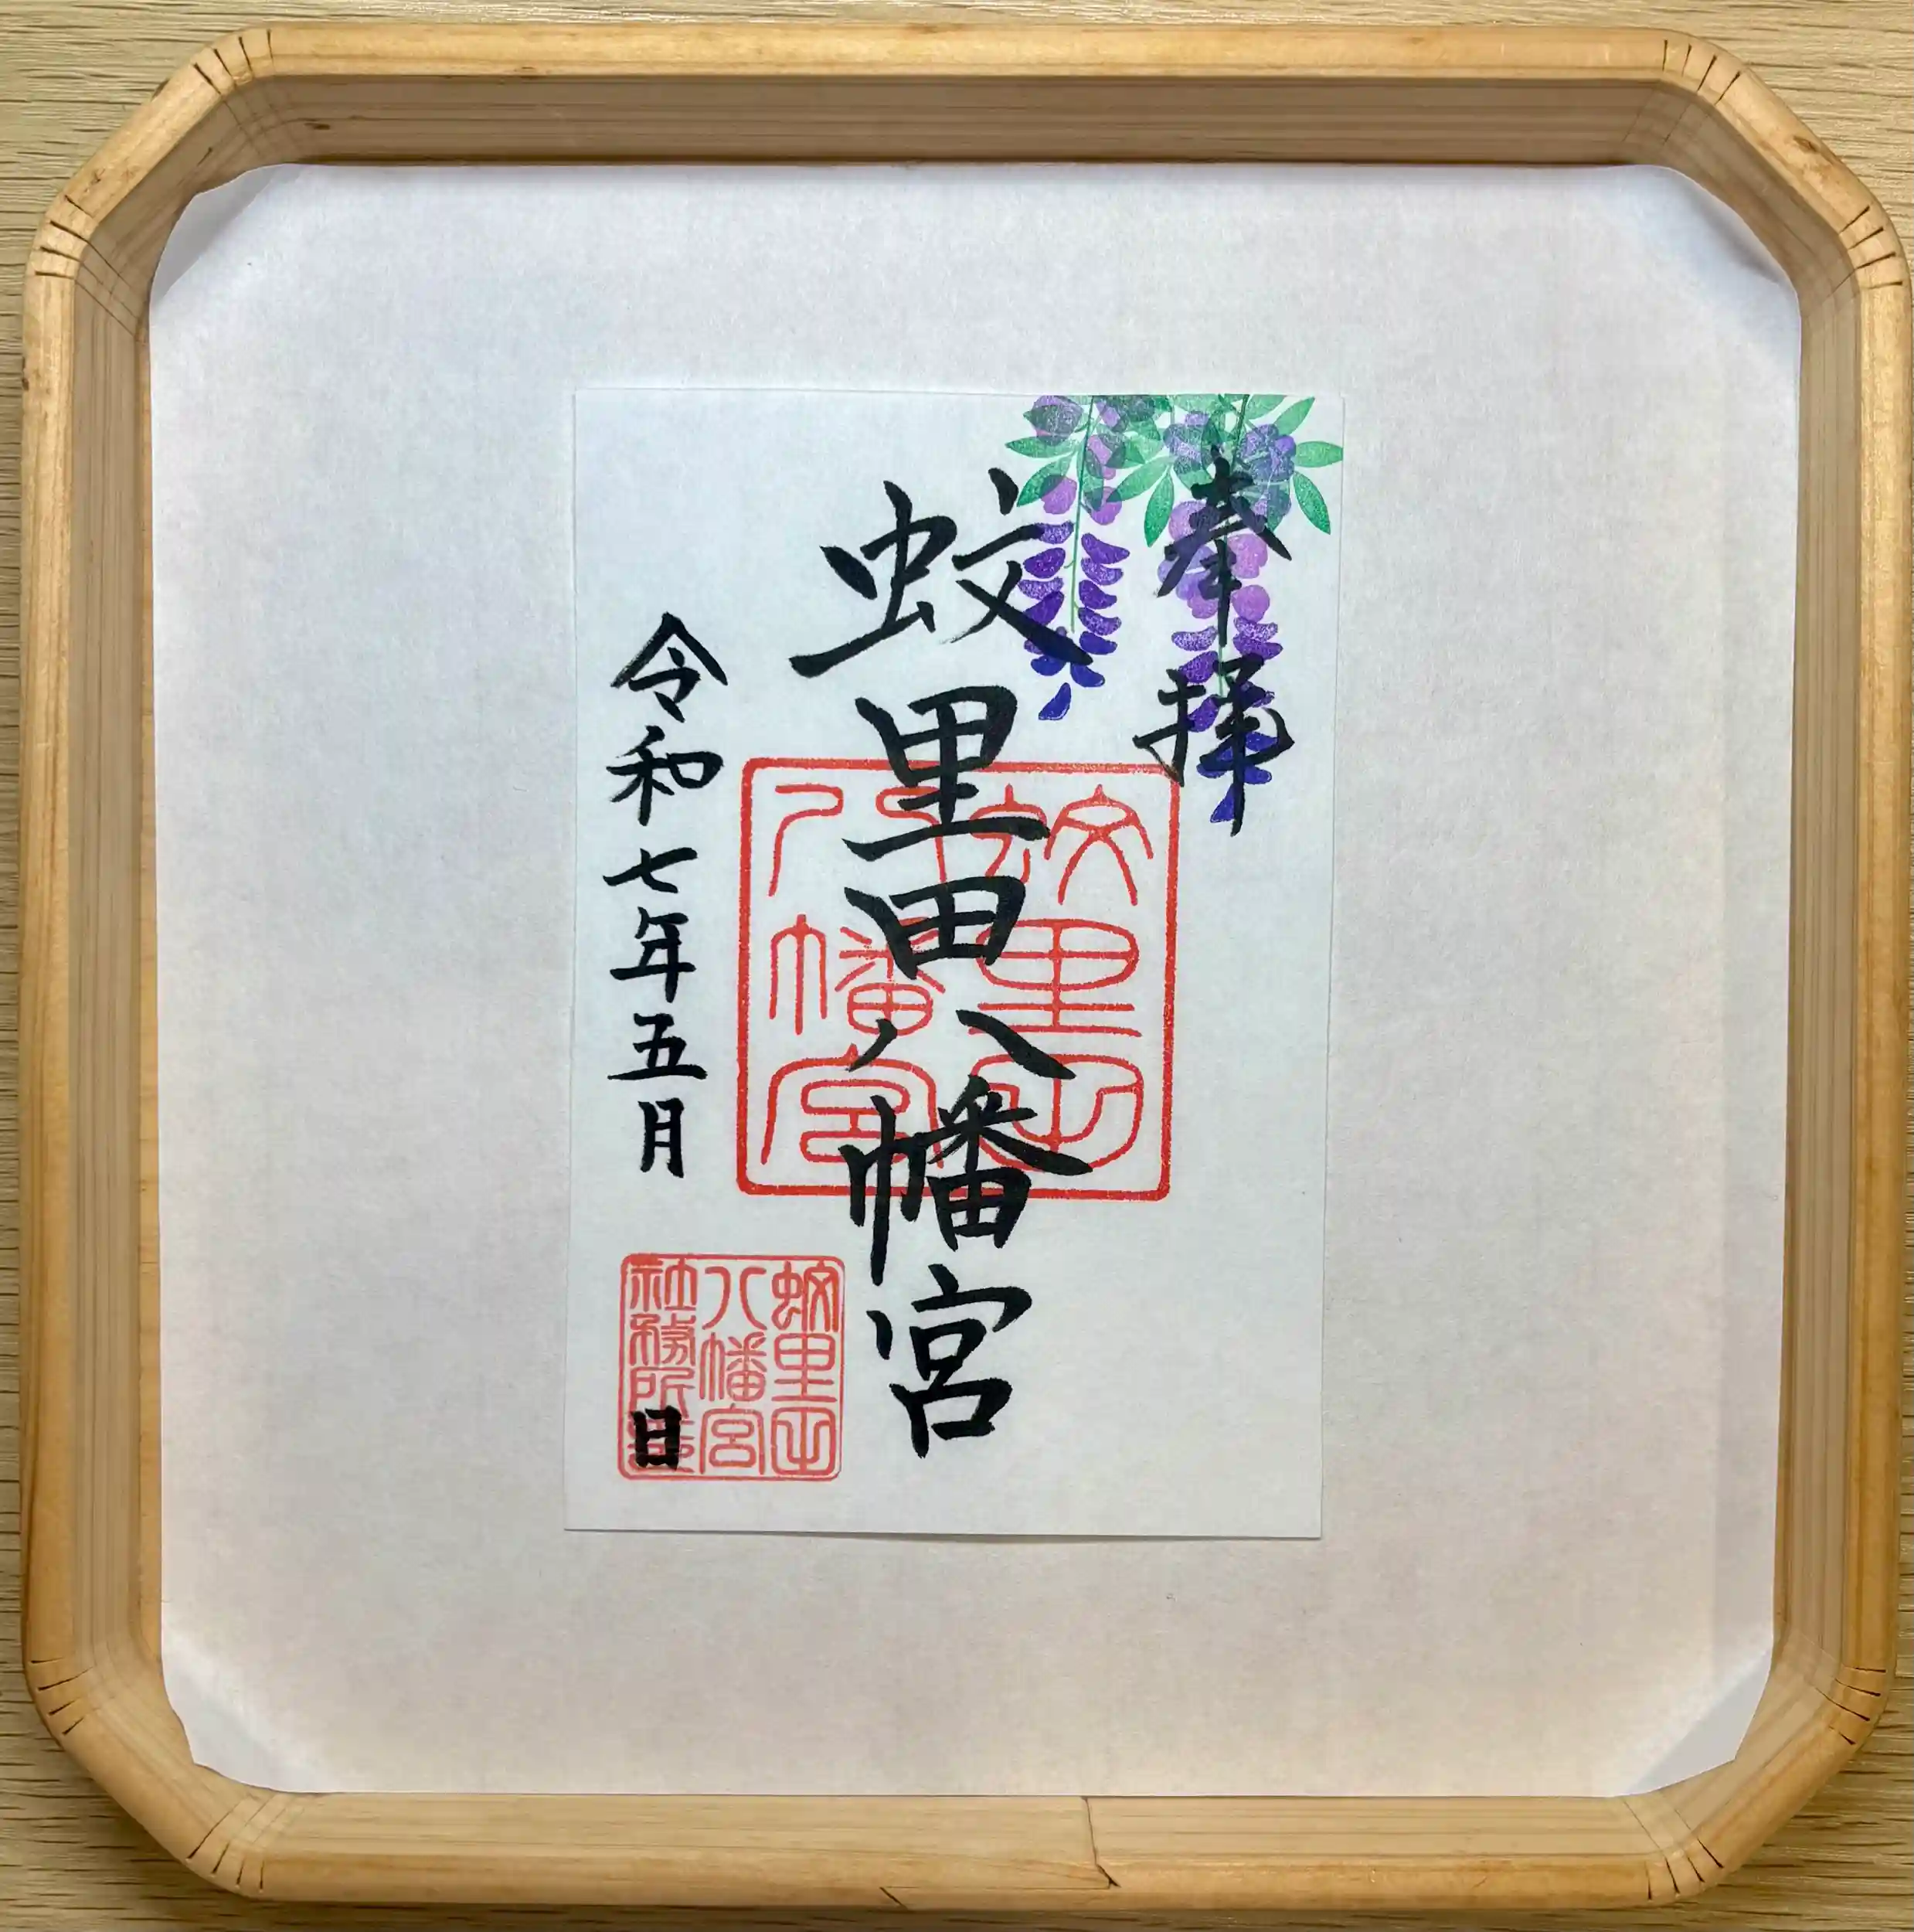 奉拝
蛟里田八幡宮
令和七年五月 日
蛟里田
八幡宮
蛟里田
八幡宮
社務所